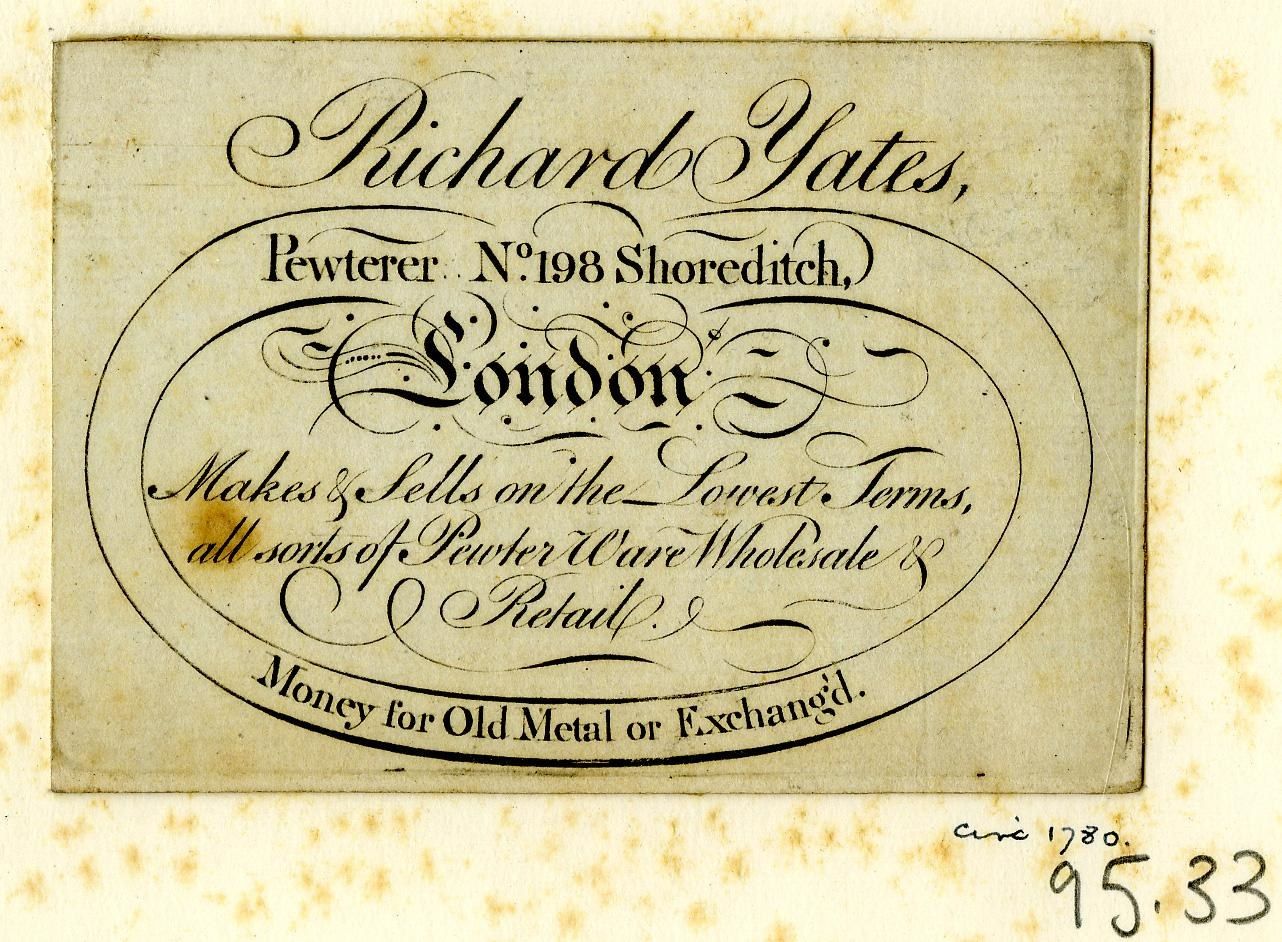 Richard Yates,
Pewterer Nº. 198 Shoreditch,
London
Makes & Sells on the Lowest Terms,
all sorts of Pewter Ware Wholesale &
Retail.
Money for Old Metal or Exchang'd.
circa 1780.
95.33